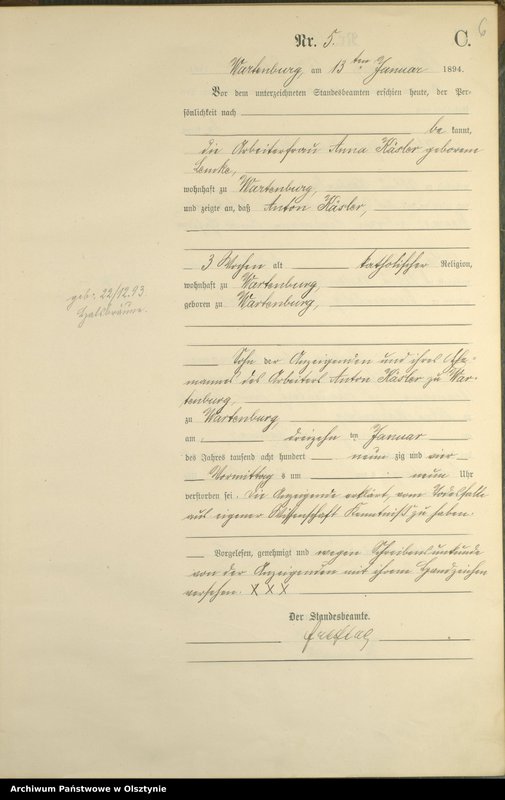 6
Nr. 5. C.
Wartenburg, am 13ten Januar 1894.
Vor dem unterzeichneten Standesbeamten erschien heute, der Per-
sönlichkeit nach
be kannt,
die Arbeiterfrau Anna Käsler geborene
Lemke,
wohnhaft zu Wartenburg,
und zeigte an, daß Anton Käsler,
3 Wochen alt katholischer Religion,
wohnhaft zu Wartenburg,
geboren zu Wartenburg,
geb: 22/12.93.
Halsbräune.
Sohn der Anzeigenden und ihres Ehe-
mannes des Arbeiters Anton Käsler zu War-
tenburg,
zu Wartenburg
am dreizehn ten Januar
des Jahres tausend acht hundert neun zig und vier
Vormittag s um neun Uhr
verstorben sei. Die Anzeigende erklärt, vom Todesfalle
aus eigener Wissenschaft Kenntniß zu haben.
Vorgelesen, genehmigt und wegen Schreibensunkunde
von der Anzeigenden mit ihrem Handzeichen
versehen. X X X
Der Standesbeamte.
Archiwum Państwowe w Olsztynie